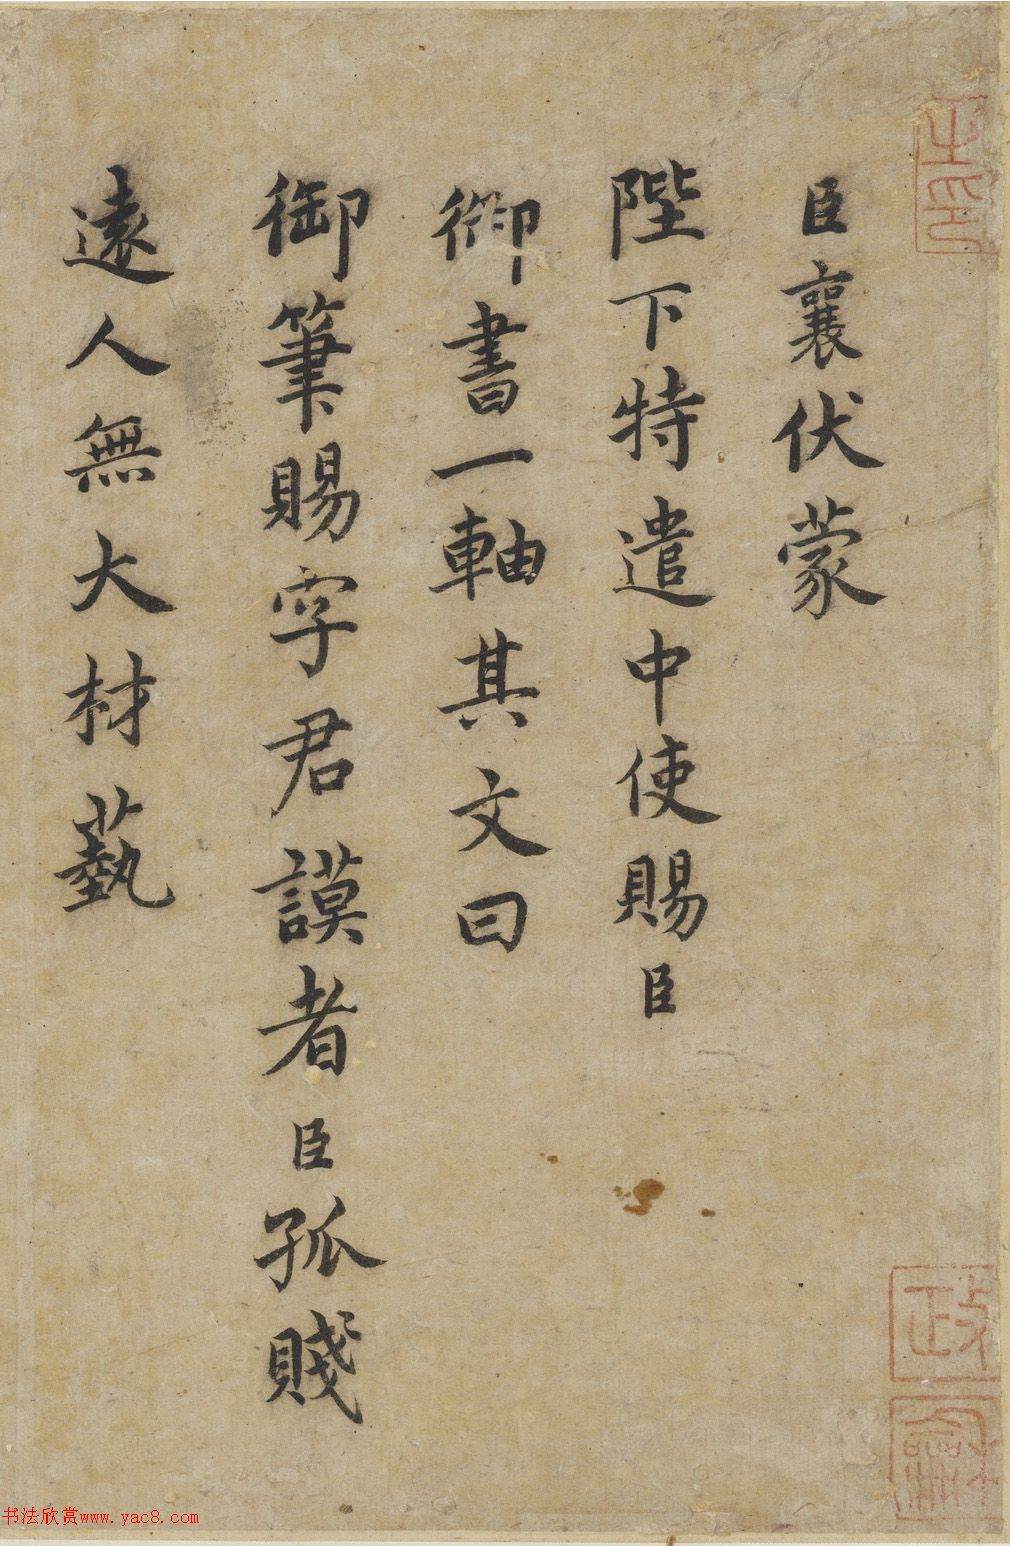 臣襄伏蒙
陛下特遣中使賜臣
御書一軸其文曰
御筆賜字君謨者臣孤賤
遠人無大材藝
之印
政和
书法欣赏www.yac8.com